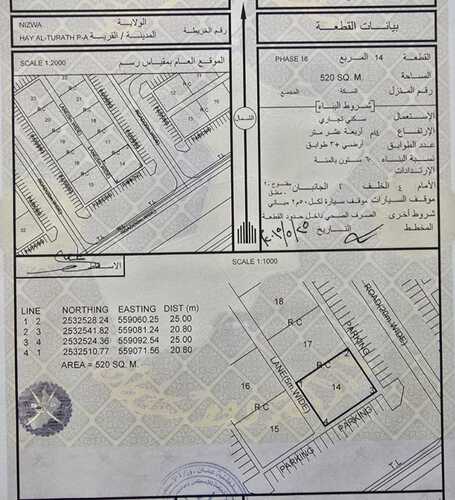 NIZWA
الولايـة
HAY AL-TURATH P-A
المدينة / القرية
رقم الخريطة
بيانـات القطعـة
SCALE 1:2000
الموقع العام بمقياس رسم
القطعة 14 المربع PHASE 16
المساحة 520 SQ. M.
رقم المنزل السكة المجمع
شروط البناء
الإستعمال سكني تجاري
الإرتفاع أربعة عشر متر
عدد الطوابق أرضي +٣ طوابق
نسبة البناء ٦٠ ستون بالمئة
الإرتدادات
الأمام ٤ الخلف ٢ الجانبان
موقف السيارات موقف سيارة لكل ٥٠م٢ مباني
شروط أخرى الصرف الصحي داخل حدود القطعة
المخطط التاريخ
الشمال
SCALE 1:1000
LINE NORTHING EASTING DIST (m)
1 2 2532528.24 559060.25 25.00
2 3 2532541.82 559081.24 20.80
3 4 2532524.36 559092.54 25.00
4 1 2532510.77 559071.56 20.80
AREA = 520 SQ. M.
18
R.C
17
ROAD(20m.WIDE)
PARKING
LANE(5m.WIDE)
16
R.C
14
15
PARKING
T.L